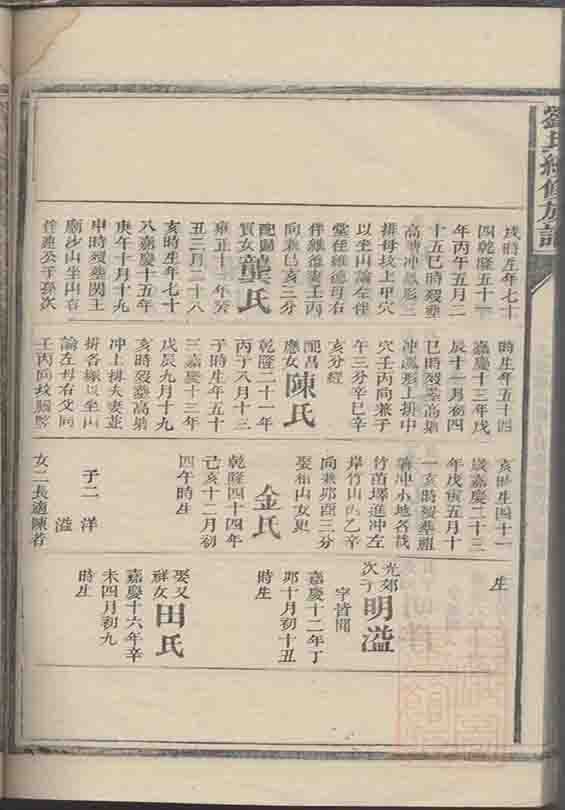 劉氏續修族譜
戌時生年七十
四乾隆五十一
年丙午五月二
十五巳時歿葬
高塘冲鳳形
排母坟上甲穴
以坐山論左伴
堂侄維德母右
伴維德妻壬丙
向兼巳亥三分
配
賓女龔氏
雍正十一年癸
丑三月二十八
亥時生年七十
八嘉慶十五年
庚午十月十九
申時歿葬関王
廟沙山坐山右
首連公于孫次
時生年五十四
嘉慶十三年戊
辰十一月初四
巳時歿葬高塘
冲鳳形上排中
穴壬丙向兼子
午三分辛巳辛
亥分經
配昌
應女陳氏
乾隆二十一年
丙子八月十三
子時生年五十
三嘉慶十三年
戊辰九月十九
亥時歿葬高塘
冲上排夫妻並
排各線以坐山
論左母右父同
壬丙向坟
亥時生四十一
歲嘉慶二十三
年戊寅五月十
一亥時歿葬祖
冲小地名栈
竹苗墿進冲左
岸竹山內乙辛
向兼卯酉三分
娶相山女更
金氏
乾隆四十四年
己亥十二月初
四午時生
子二 洋
溢
女二長適陳者
生
光郊
次子明溢
字皆聞
嘉慶十二年丁
卯十月初十丑
時生
娶又
祥女田氏
嘉慶十六年辛
未四月初九
時生